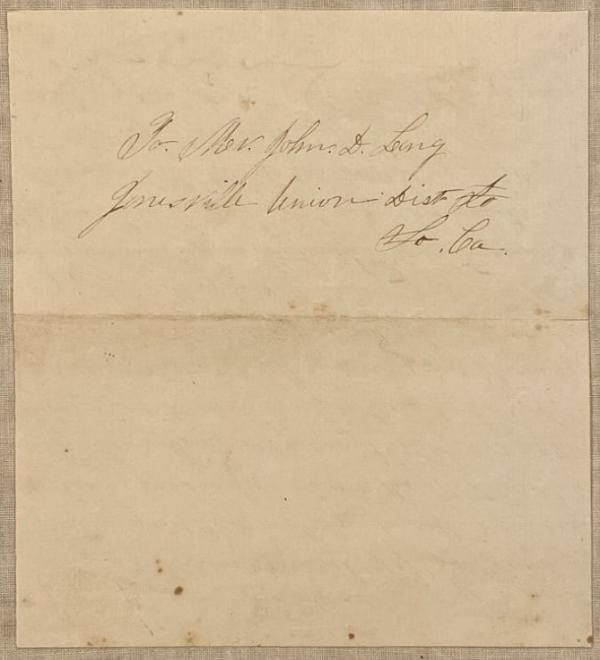 To. Rev. John. D. Long
Jonesville Union Dist
So. Ca.